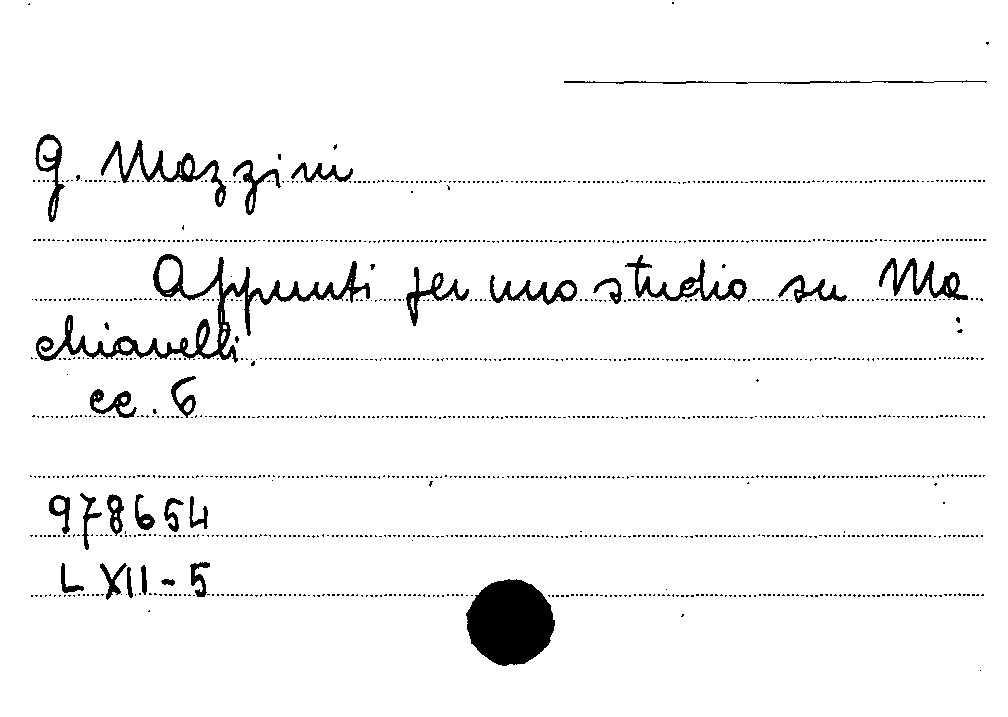 G. Mazzini
Appunti per uno studio su Ma
chiavelli.
cc. 6
978654
L XII - 5